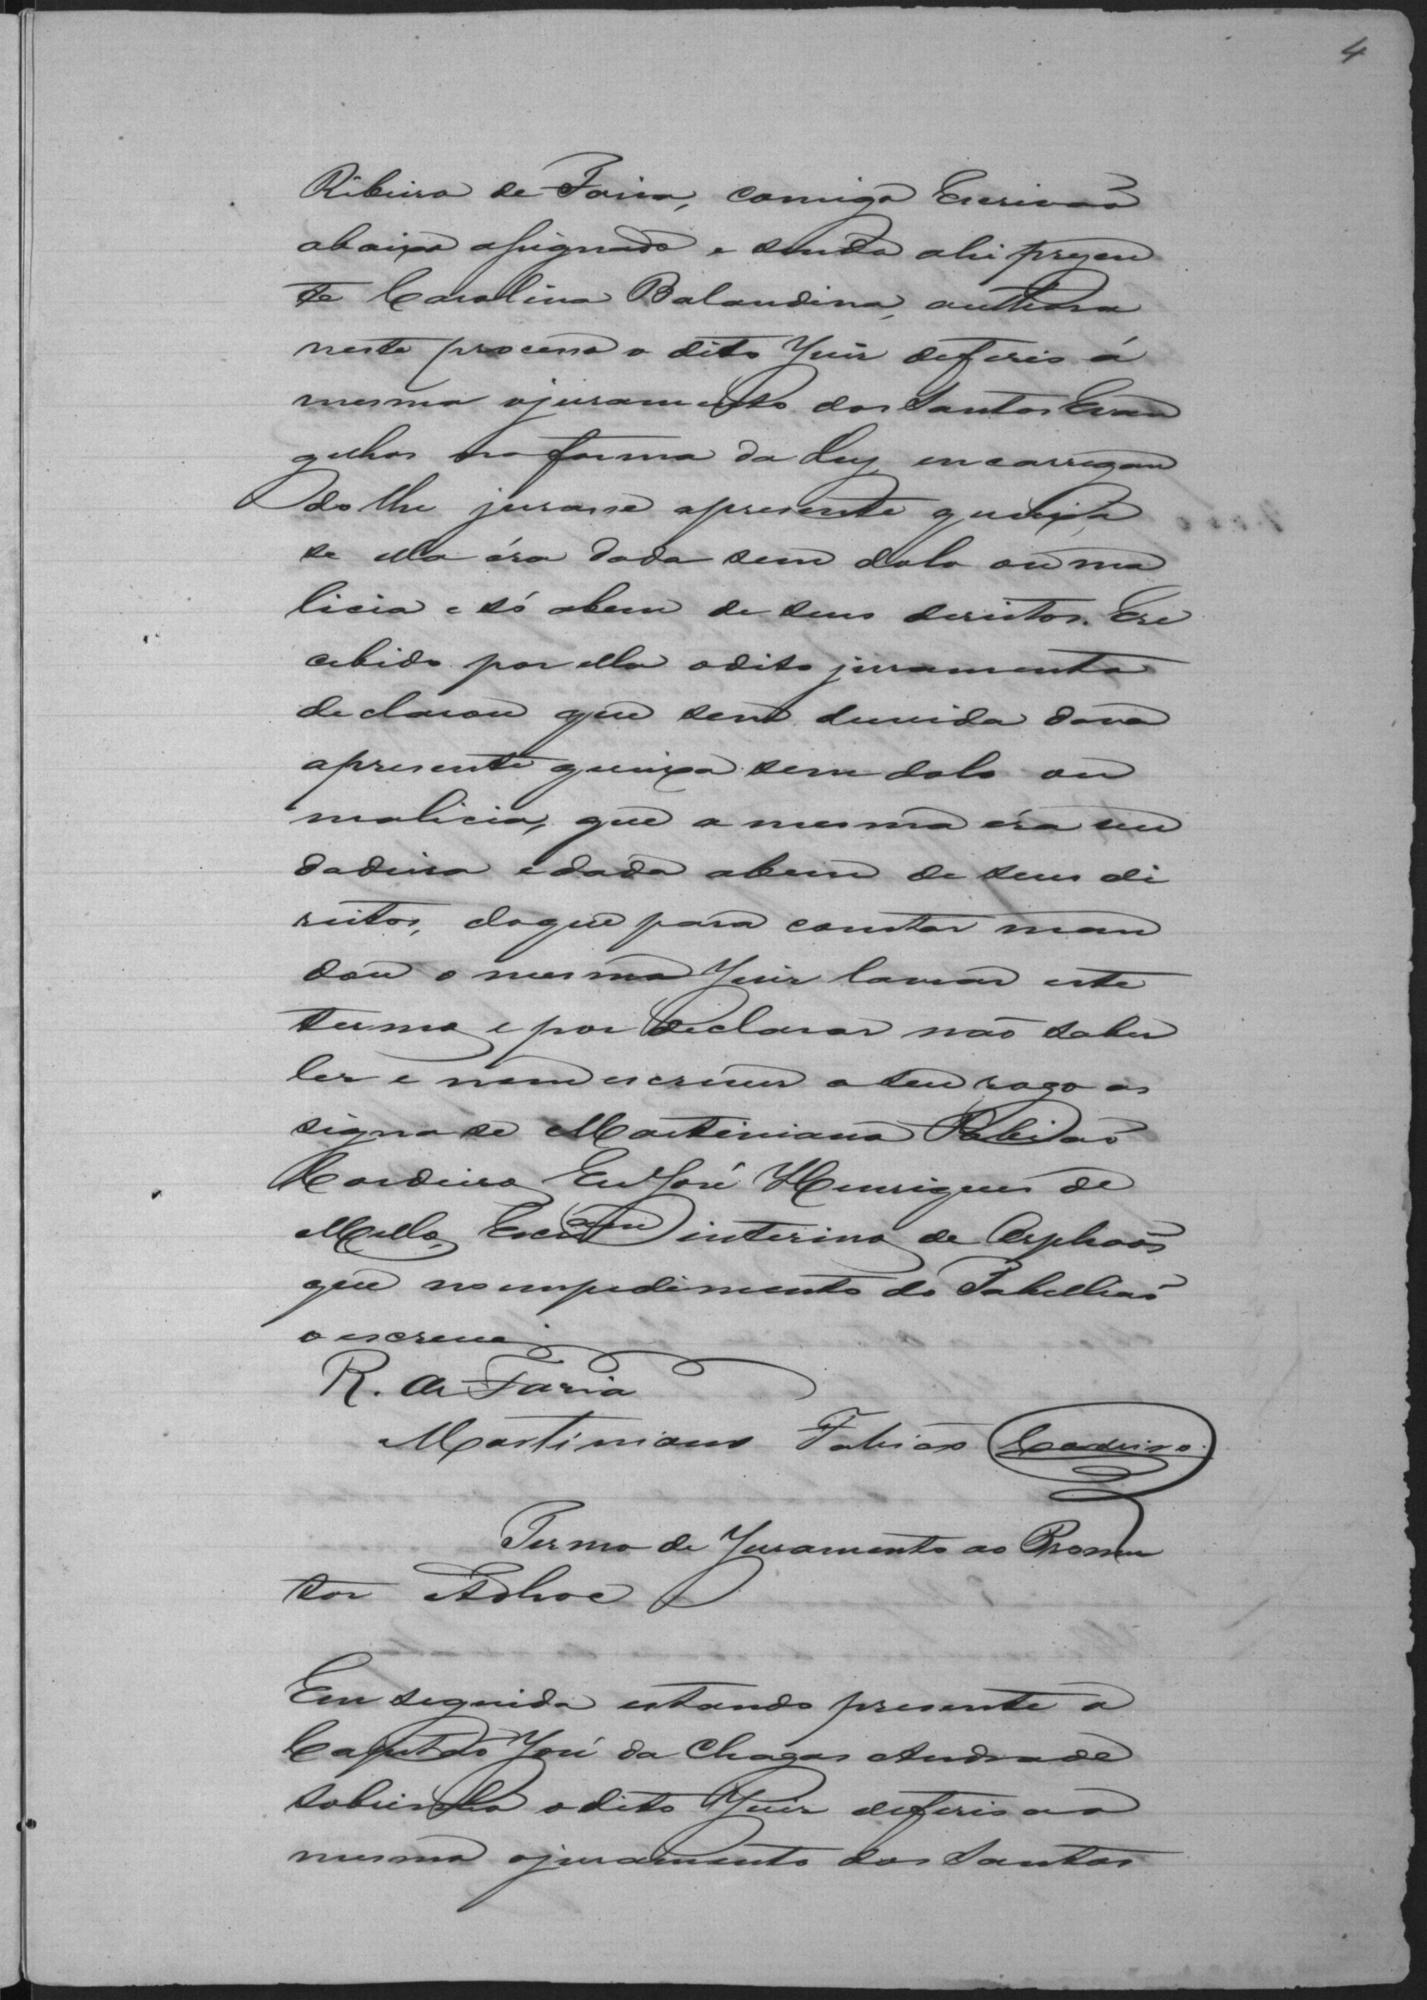 4
Ribeiro de Faria, comigo Escrivaõ
abaixo assignado e sendo ahi prezen
te Carolina Balandina, authora
neste processo o dito Juiz deferio á
mesma ojuramento dos Santos Evan
gelhos na forma da Ley encarregan
dolhe jurasse apresente queixa
se ella éra dada sem dolo ou ma
licia e só abem de seus dereitos. Ere
cebido por ella odito juramento
declarou que sem duvida dava
apresente queixa sem dolo ou
malicia, que a mesma éra ver
dadeira edada abem de seus di
reitos, doque para constar man
dou o mesmo Juiz lavrar este
termo e por declarar não saber
ler e nem escrever a seu rogo as
signase Martiniano Fabiaõ
Cordeiro Eu José Henriques de
Mello, interino de Orphaõs
que no empedimento do Tabelliaõ
o escrevej
R. de Faria
Martiniano Fabião Cordeiro
Termo de Juramento ao Promo
tor Adhoc
Em seguida estando presente o
Capitão José da Chagas Andrade
Sobrinho odito Juiz deferio ao
mesmo ojuramento dos Santos